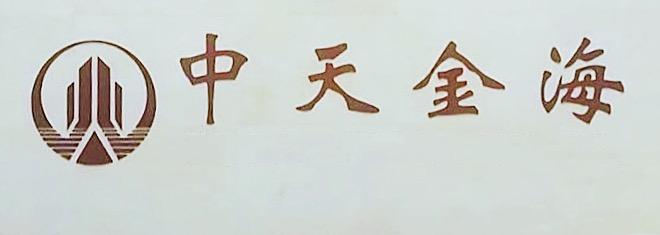 中天金海